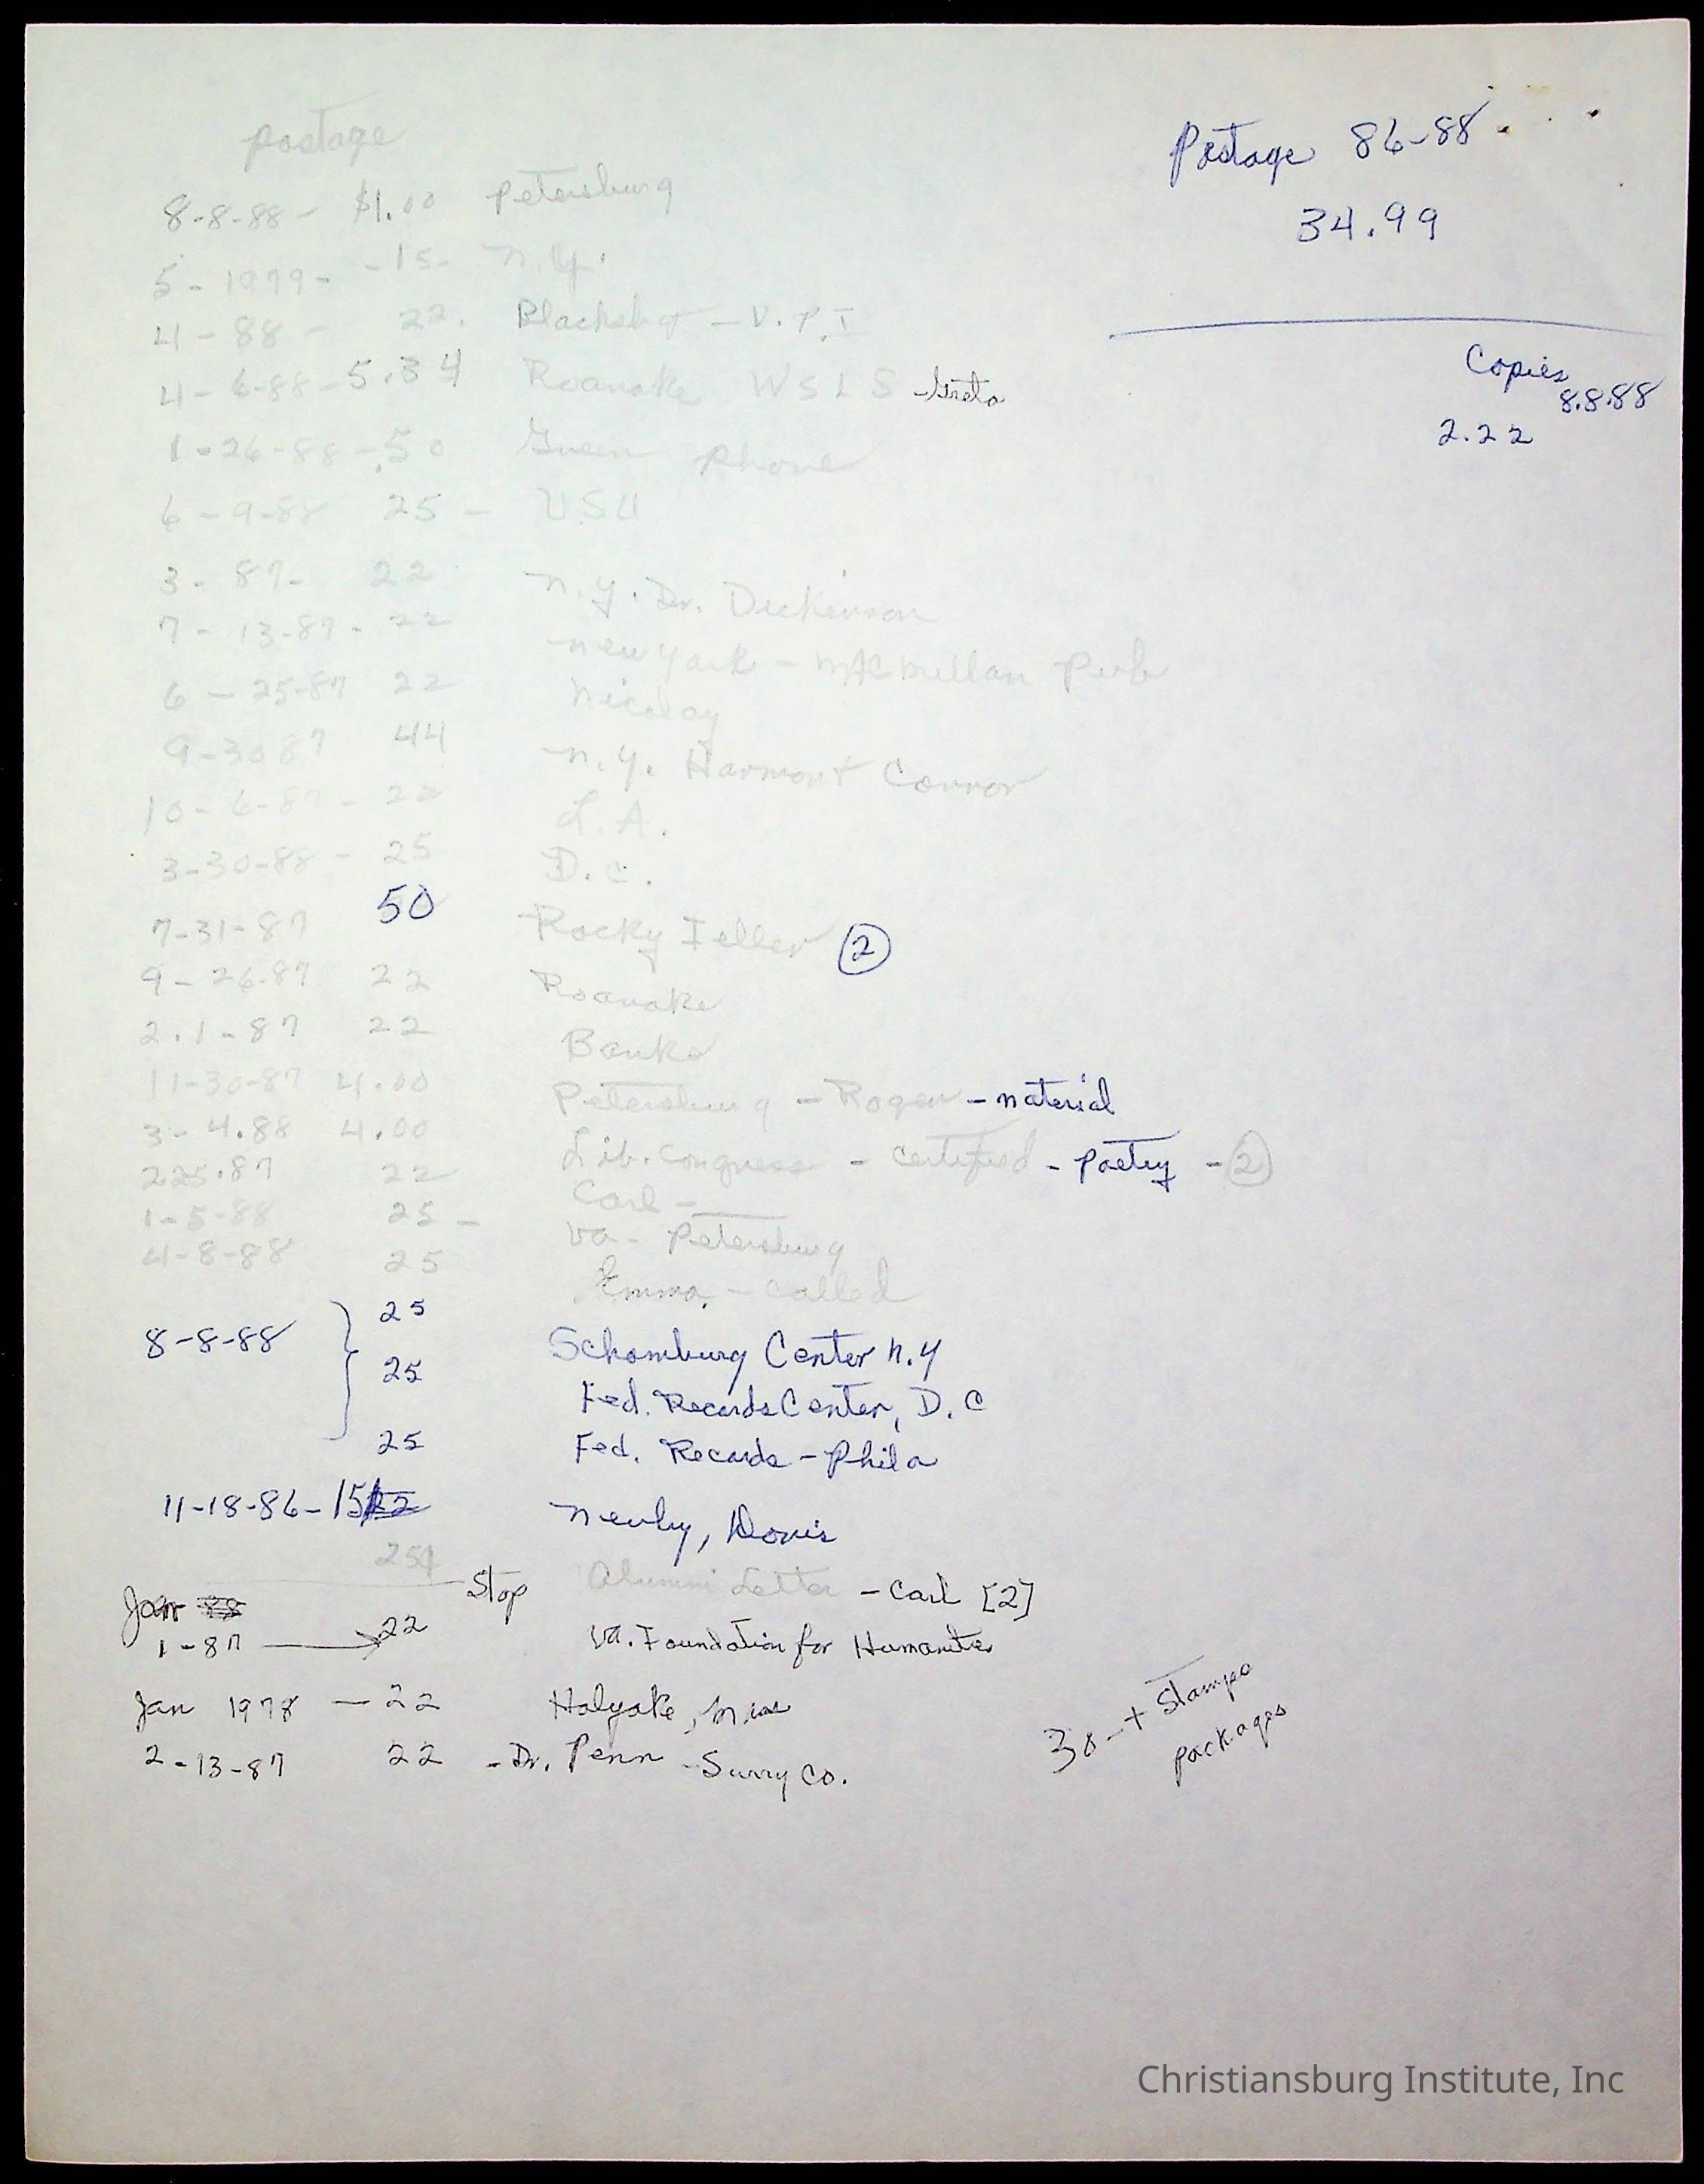 Postage
8-8-88- $1.00 Petersburg
5-1979- -15- N.Y.
4-88- 22. Blacksbg-V.P.I
4-6-88-5.34 Roanoke WSLS -Greta
1-26-88-.50 Green phone
6-9-88 25- VSU
3-87- 22 N.Y. Dr. Dickenson
7-13-87- 22 New York - MACmillan Pub
6-25-87 22 Nicolay
9-30 87 44 N.Y. Harmont Connor
10-6-87- 22 L.A.
3-30-88- 25 D.C.
7-31-87 50 Rocky Feller (2)
9-26-87 22 Roanoke
2.1-87 22 Banks
11-30-87 4.00 Petersburg - Roger - material
3-4.88 4.00 Lib. Congress - certified - poetry - (2)
225.87 22 Carl -
1-5-88 25 - Va - Petersburg
4-8-88 25 Emma - called
8-8-88 } 25 Schomburg Center N.Y
25 Fed. Records Center, D.C
25 Fed. Records - Phila
11-18-86-15 22 Newby, Doris
25¢ Alumni Letter - Carl [2]
Stop
Jan 88
1-87 22 Va. Foundation for Humanities
Jan 1978 - 22 Holyoke,
2-13-87 22 -Dr. Penn - Surry Co.
Postage 86-88
34.99
Copies
8.8.88
2.22
30-+ Stamps
packages
Christiansburg Institute, Inc